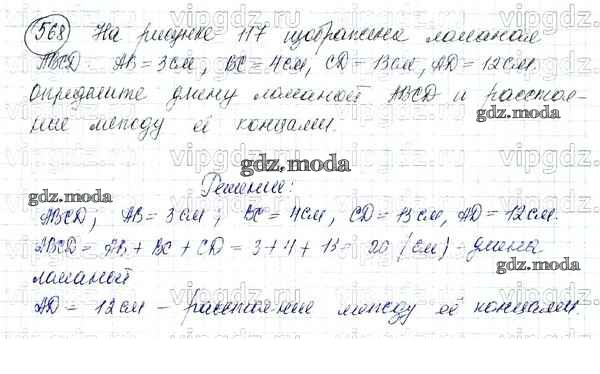 568 На рисунке 117 изображена ломаная
ABCD. AB = 3 см, BC = 4 см, CD = 13 см, AD = 12 см.
Определите длину ломаной ABCD и расстоя-
ние между её концами.
gdz.moda
gdz.moda
Решение:
gdz.moda
ABCD; AB = 3 см; BC = 4 см, CD = 13 см, AD = 12 см.
ABCD = AB + BC + CD = 3 + 4 + 13 = 20 (см) - длина
gdz.moda
ломаной
AD = 12 см - расстояние между её концами.